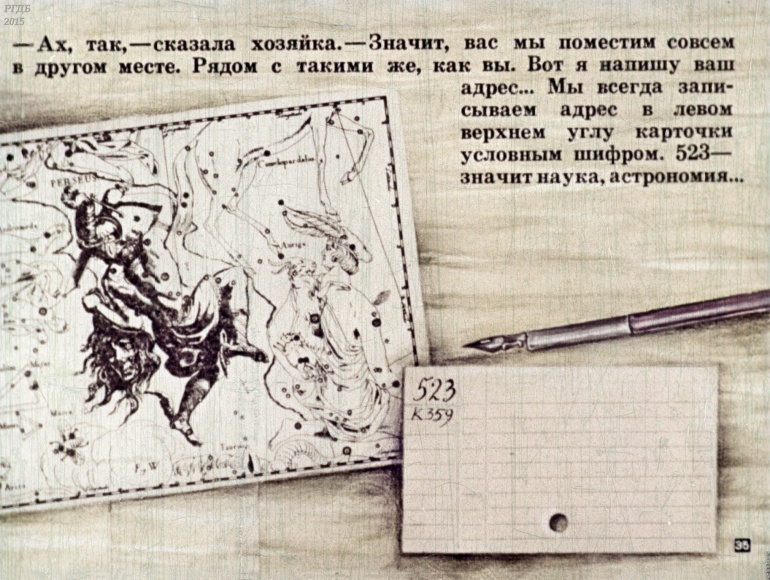 РГДБ
2015
— Ах, так,—сказала хозяйка.—Значит, вас мы поместим совсем
в другом месте. Рядом с такими же, как вы. Вот я напишу ваш
адрес... Мы всегда запи-
сываем адрес в левом
верхнем углу карточки
условным шифром. 523—
значит наука, астрономия...
PERSEUS
Camelopardalus
Auriga
523
К359
35